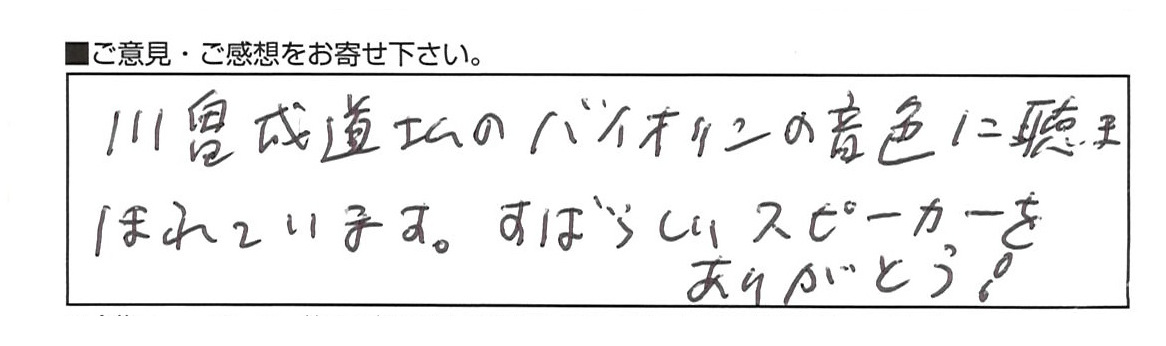 ■ご意見・ご感想をお寄せ下さい。
川畠成道さんのバイオリンの音色に聴き
ほれています。すばらしいスピーカーを
ありがとう!